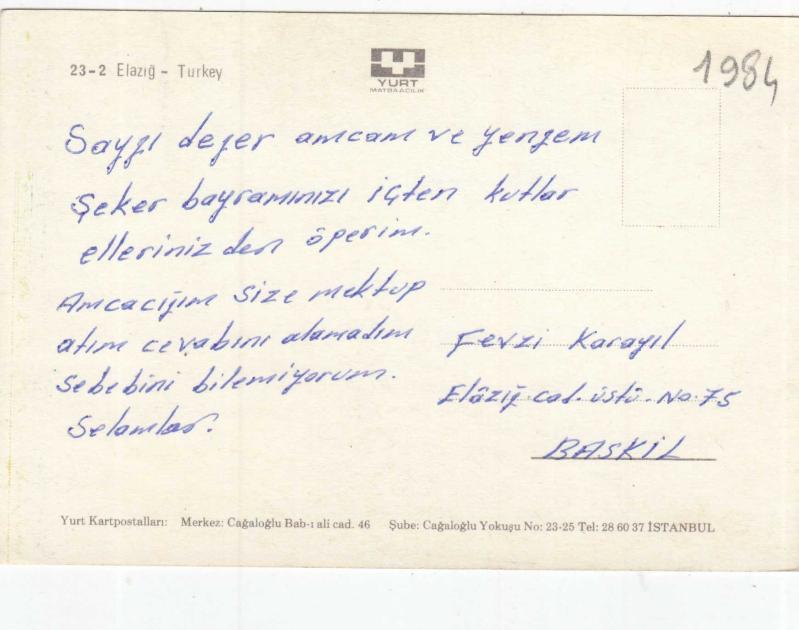 23-2 Elazığ - Turkey
YURT
MATBAACILIK
1984
Saygı değer amcam ve yengem
Şeker bayramınızı içten kutlar
ellerinizden öperim.
Amcacığım size mektup
atım cevabını alamadım
sebebini bilemiyorum.
Selamlar.
Fevzi Karayıl
Elâzığ cad. üstü. No. 75
BASKİL
Yurt Kartpostalları: Merkez: Cağaloğlu Bab-ı ali cad. 46 Şube: Cağaloğlu Yokuşu No: 23-25 Tel: 28 60 37 İSTANBUL